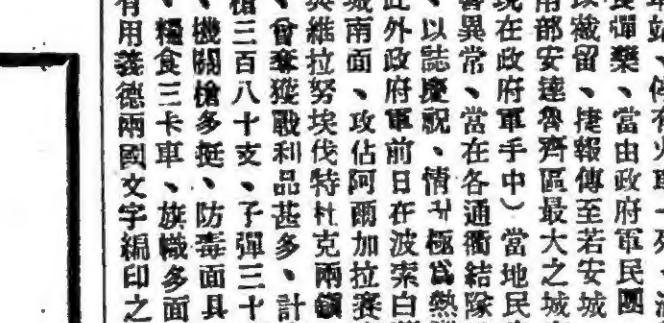 車站、停有火車一列、
彈藥、當由政府軍民團
以截留、捷報傳至若安城
部安達魯齊區最大之城
現在政府軍手中）當地民
異常、當在各通衢結隊
、以誌慶祝、情形極爲熱
此外政府軍前日在波索白
城南面、攻佔阿爾加拉賽
與維拉努埃伐特杜克兩鎮
、曾奪獲戰利品甚多、計
槍三百八十支、子彈三十
、機關槍多挺、防毒面具
、糧食三卡車、旗幟多面
有用義德兩國文字編印之